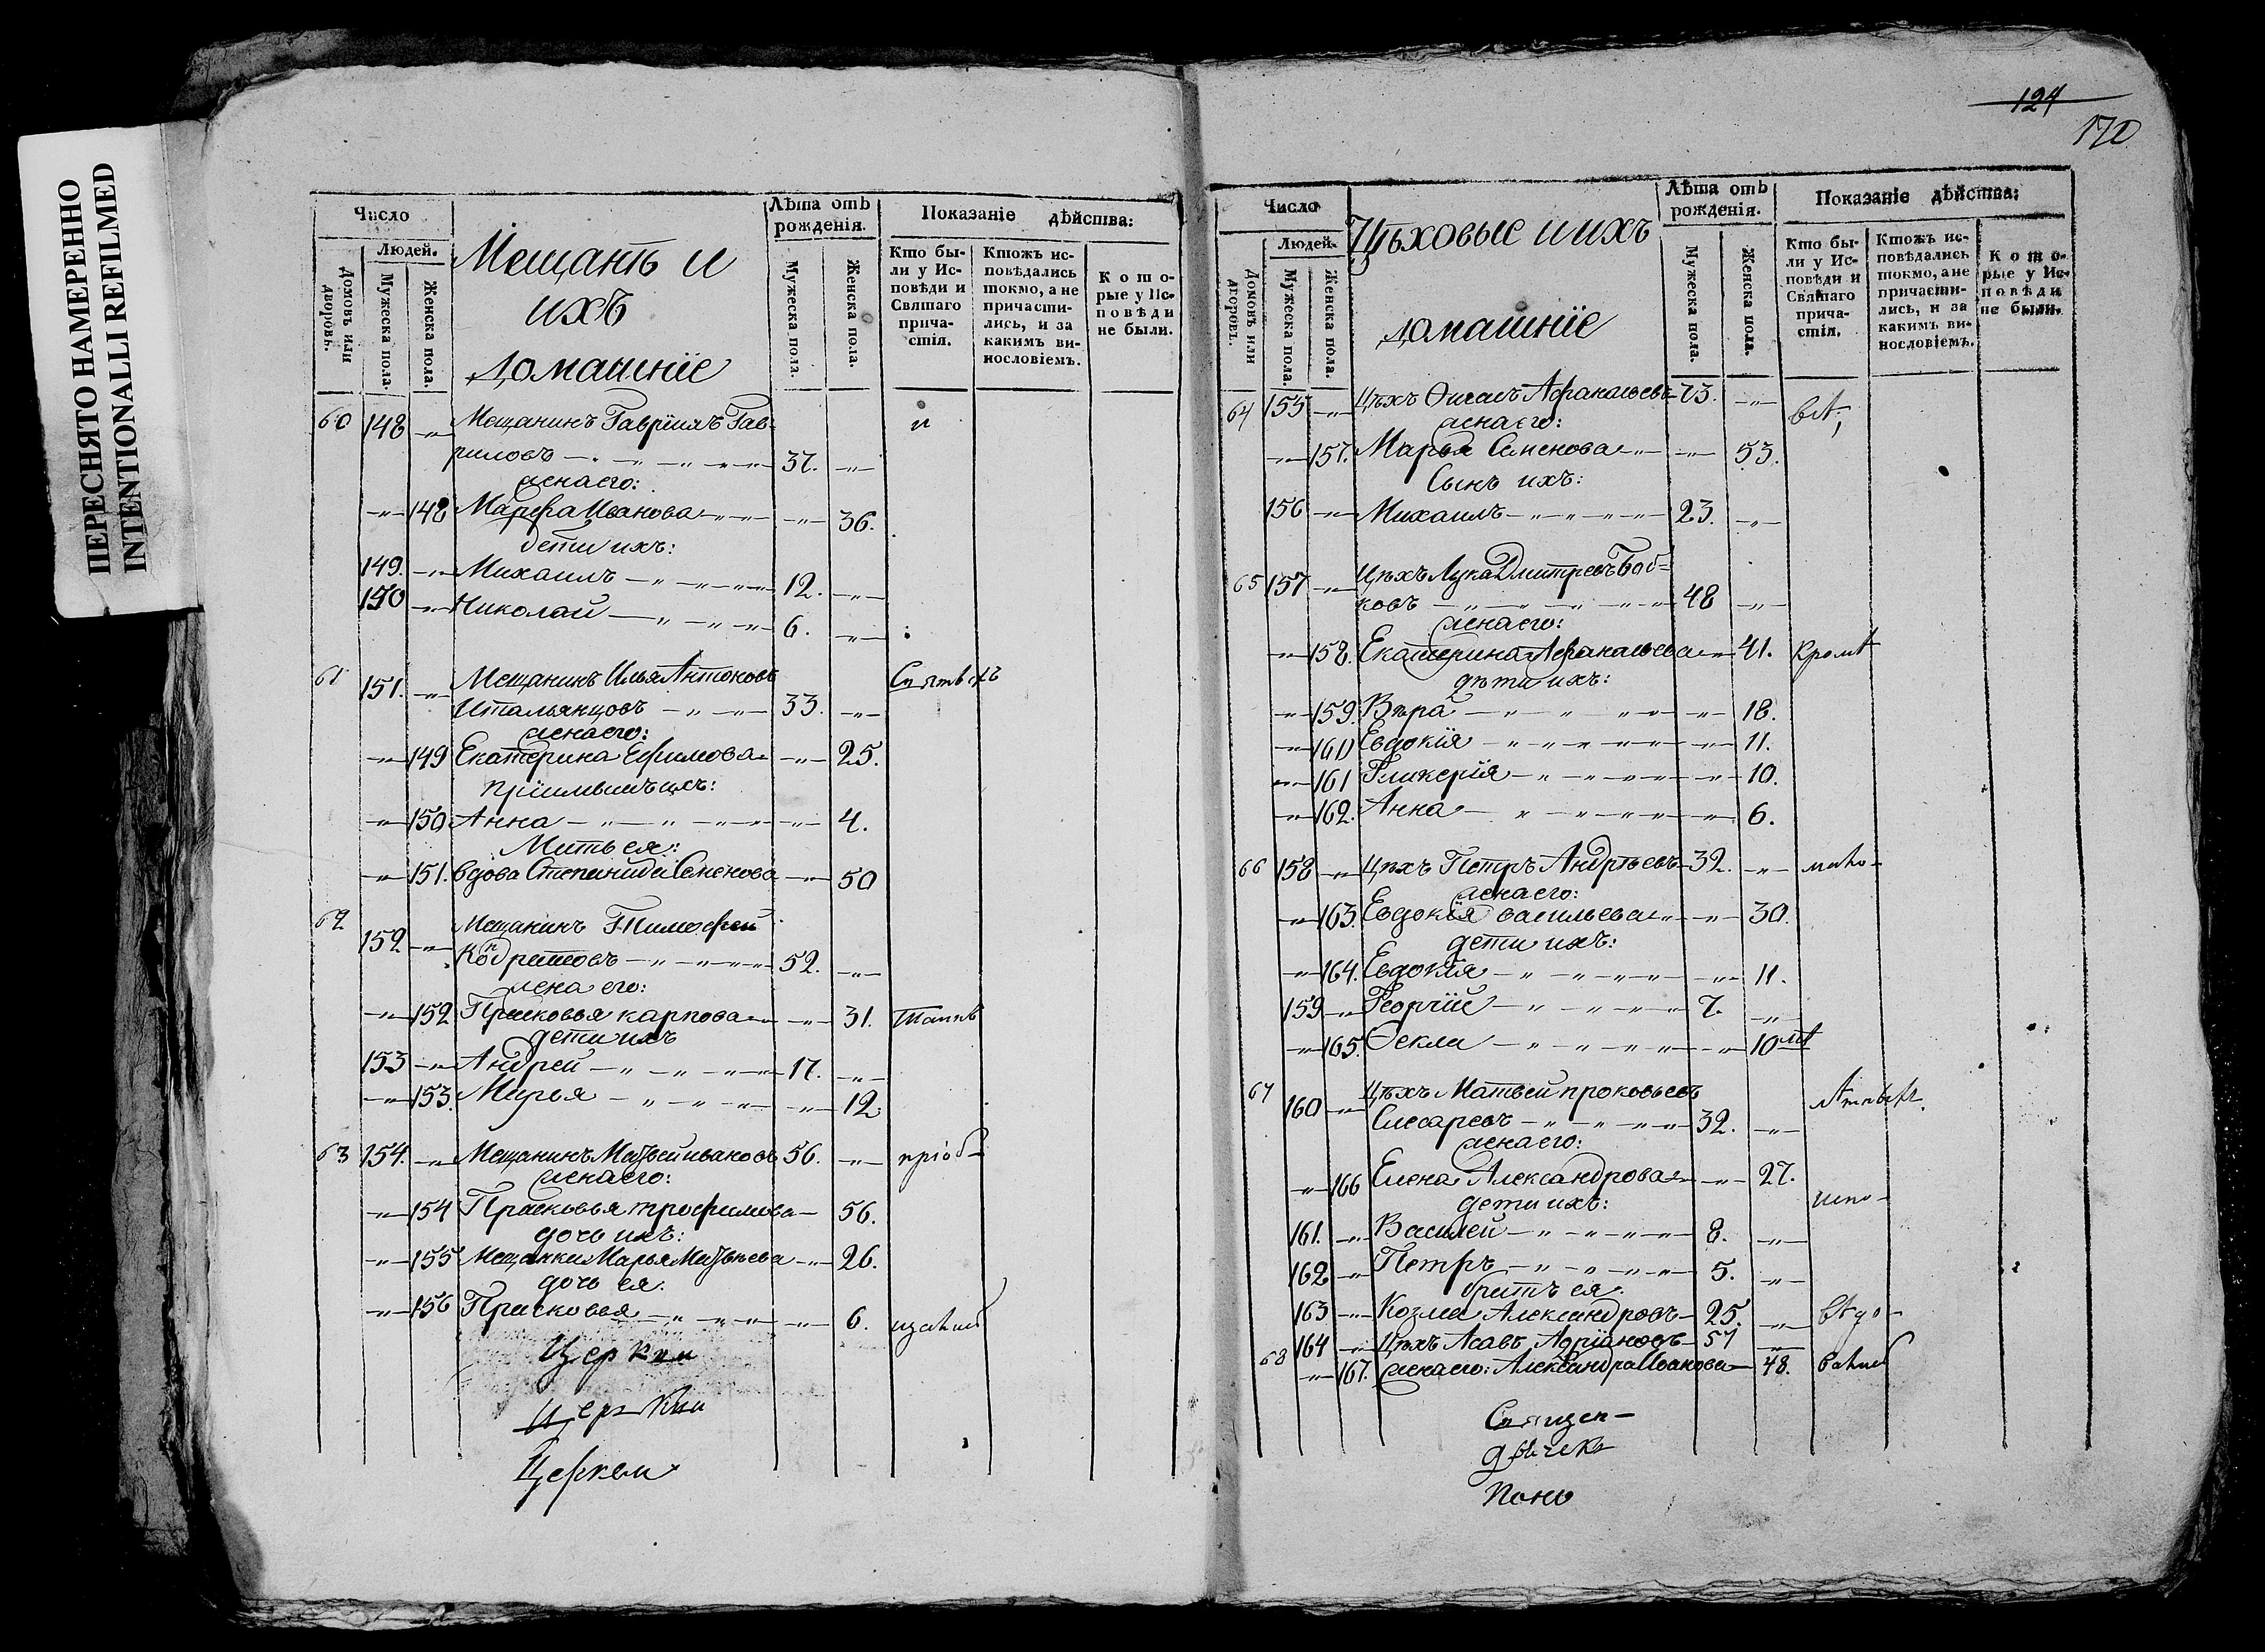 ПЕРЕСНЯТО НАМЕРЕННО
INTENTIONALLI REFILMED
Число
Людей.
Домовъ или дворовъ.
Мужеска пола.
Женска пола.
Мещанъ и
ихъ
домашніе
Лѣта отъ рожденія.
Мужеска пола.
Женска пола.
Показаніе дѣйства:
Кто были у Исповѣди и Святаго причастія.
Ктожъ исповѣдались токмо, а не причастились, и за какимъ винословіемъ.
Которые у Исповѣди не были.
60 148 —"— Мещанинъ Гавріилъ Гав-
риловъ —"—"—"— 37. —"— и
жена его:
—"— 148 Марфа Иванова —"— —"— 36.
дети ихъ:
149. —"— Михаилъ —"—"—"— 12. —"—
150 —"— Николай —"—"—"— 6. —"—
61 151. —"— Мещанинъ Илья Антоновъ
Итальянцовъ —"—"— 33. —"—
жена его:
—"— 149 Екатерина Ефимова —"— 25.
—"— 150 Анна —"—"—"— —"— 4.
Мать ея:
—"— 151. вдова Степанида Семенова —"— 50
62 152 —"— Мещанинъ Тимофей
Кондратовъ —"—"—"— 52. —"—
жена его:
—"— 152 Прасковья карпова —"— —"— 31.
дети ихъ
153 —"— Андрей —"—"—"— 17. —"—
—"— 153. Марья —"—"—"— —"— 12
63 154. —"— Мещанинъ Матвей ивановъ 56. —"— пріоб-
жена его:
—"— 154 Прасковья трофимова — 56.
дочь ихъ:
—"— 155 Мещанки Марья Матвеева —"— 26.
дочь ея.
—"— 156 Прасковья —"—"—"— —"— 6.
Церкви
Церкви
Церкви
124
170
Число
Людей.
Домовъ или дворовъ.
Мужеска пола.
Женска пола.
Цѣховые и ихъ
домашніе
Лѣта отъ рожденія.
Мужеска пола.
Женска пола.
Показаніе дѣйства:
Кто были у Исповѣди и Святаго причастія.
Ктожъ исповѣдались токмо, а не причастились, и за какимъ винословіемъ.
Которые у Исповѣди не были.
64 155 —"— Цѣхъ Афанасьевъ 73. —"—
жена его:
—"— 157. Марья Семенова —"— —"— 53.
Сынъ ихъ:
156 —"— Михаилъ —"—"—"— 23. —"—
65 157 —"— Цѣхъ Лука Дмитревъ Боб-
ковъ —"—"—"— 48 —"—
жена его:
—"— 158. Екатерина Афанасьева —"— 41. Кромѣ
дѣти ихъ:
—"— 159. Вѣра —"—"—"— —"— 18.
—"— 160 Евдокія —"—"—"— —"— 11.
—"— 161 Гликерія —"—"—"— —"— 10.
—"— 162. Анна —"—"—"— —"— 6.
66 158 —"— Цѣхъ Петръ Андрѣевъ 32. —"—
жена его:
—"— 163. Евдокія васильева —"— —"— 30.
дети ихъ:
—"— 164. Евдокія —"—"—"— —"— 11.
159 —"— Георгій —"—"—"— 7. —"—
—"— 165. Фекла —"—"—"— —"— 10 мѣ
67 160 —"— Цѣхъ Матвей прокофьевъ
Слесаревъ —"—"—"— 32. —"—
жена его:
—"— 166 Елена Александрова —"— —"— 27.
дети ихъ:
161. —"— Василей —"—"—"— 8. —"—
162 —"— Петръ —"—"—"— 5. —"—
братъ ея.
163 —"— Козма Александровъ — 25. —"—
68 164 —"— Цѣхъ Адріановъ — 57 —"—
—"— 167. жена его: Александра Иванова — 48.
Священ-
дьячекъ
Поно